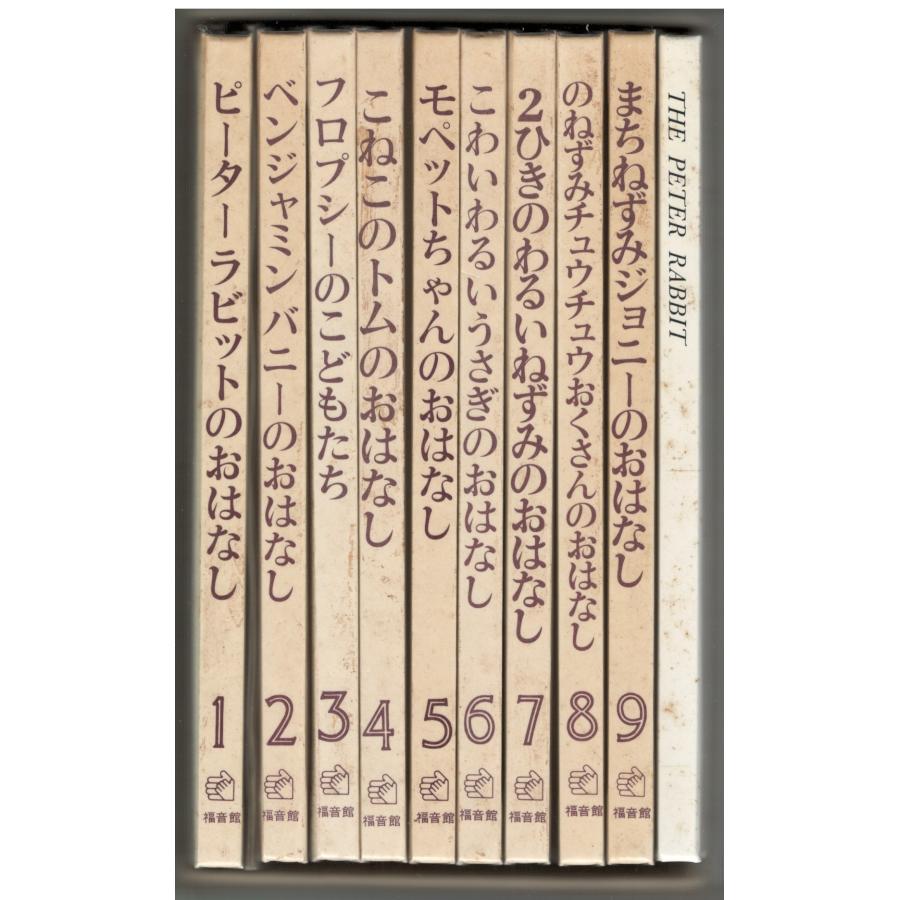 ピーターラビットのおはなし
1
福音館
ベンジャミン バニーのおはなし
2
福音館
フロプシーのこどもたち
3
福音館
こねこのトムのおはなし
4
福音館
モペットちゃんのおはなし
5
福音館
こわいわるいうさぎのおはなし
6
福音館
2ひきのわるいねずみのおはなし
7
福音館
のねずみチュウチュウおくさんのおはなし
8
福音館
まちねずみジョニーのおはなし
9
福音館
THE PETER RABBIT